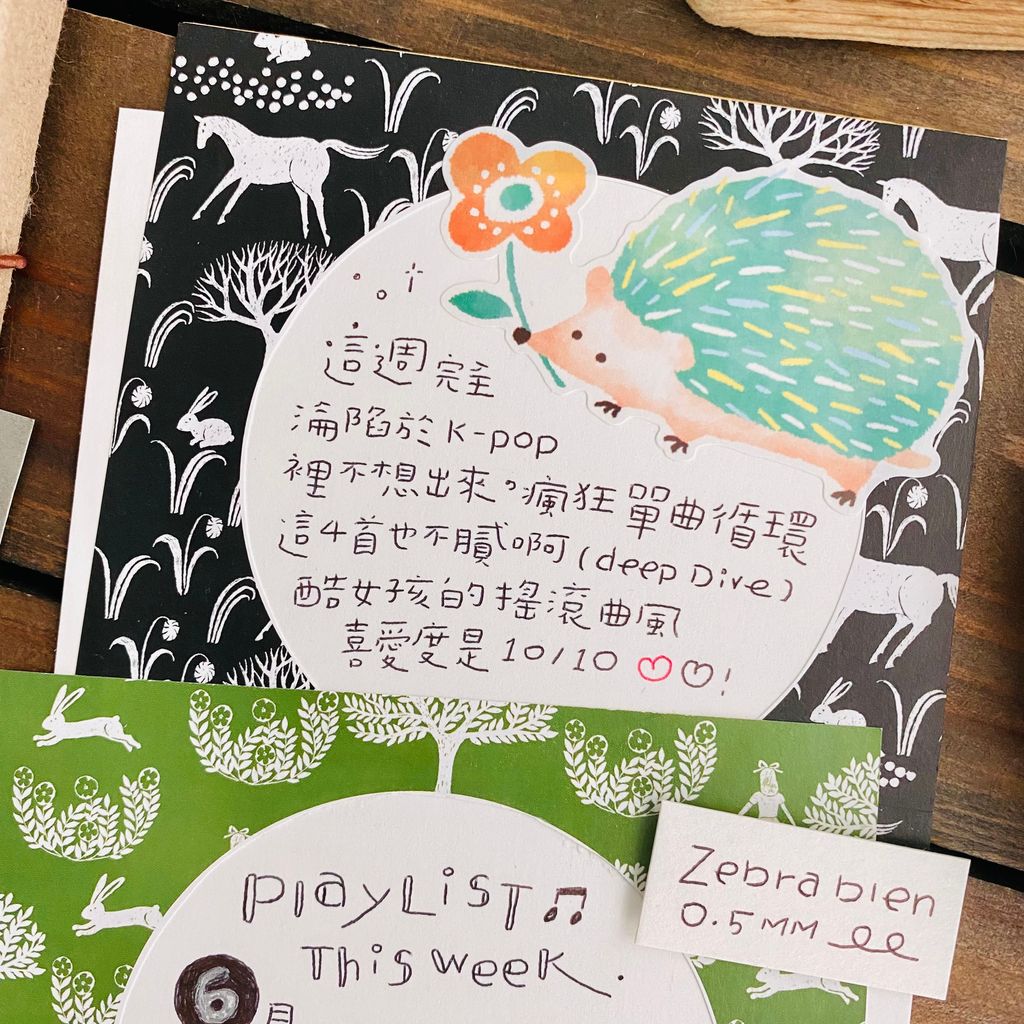 這週完全
淪陷於K-pop
裡不想出來。瘋狂單曲循環
這4首也不膩啊(deep Dive)
酷女孩的搖滾曲風
喜愛度是10/10 ♡♡!
PlayList ♫
This week.
6月
Zebra blen
0.5MM